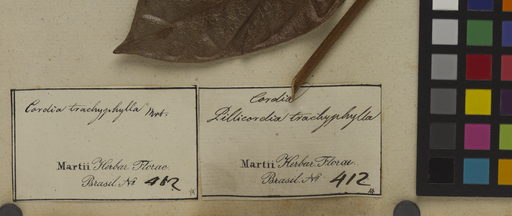 Cordia trachyphylla Mrt.
Martii Herbar. Florae
Brasil. No 412
Cordia
Pilicordia trachyphylla
Martii Herbar. Florae.
Brasil. No 412